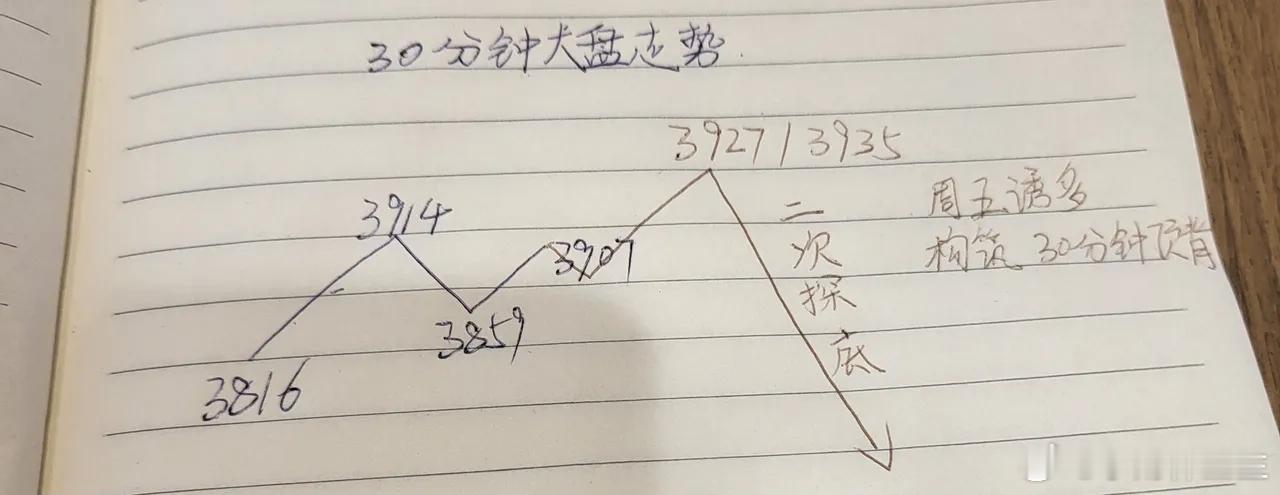 30分钟大盘走势
3927/3935
3914
二次探底
周五诱多
构筑30分钟顶背
3907
3859
3816